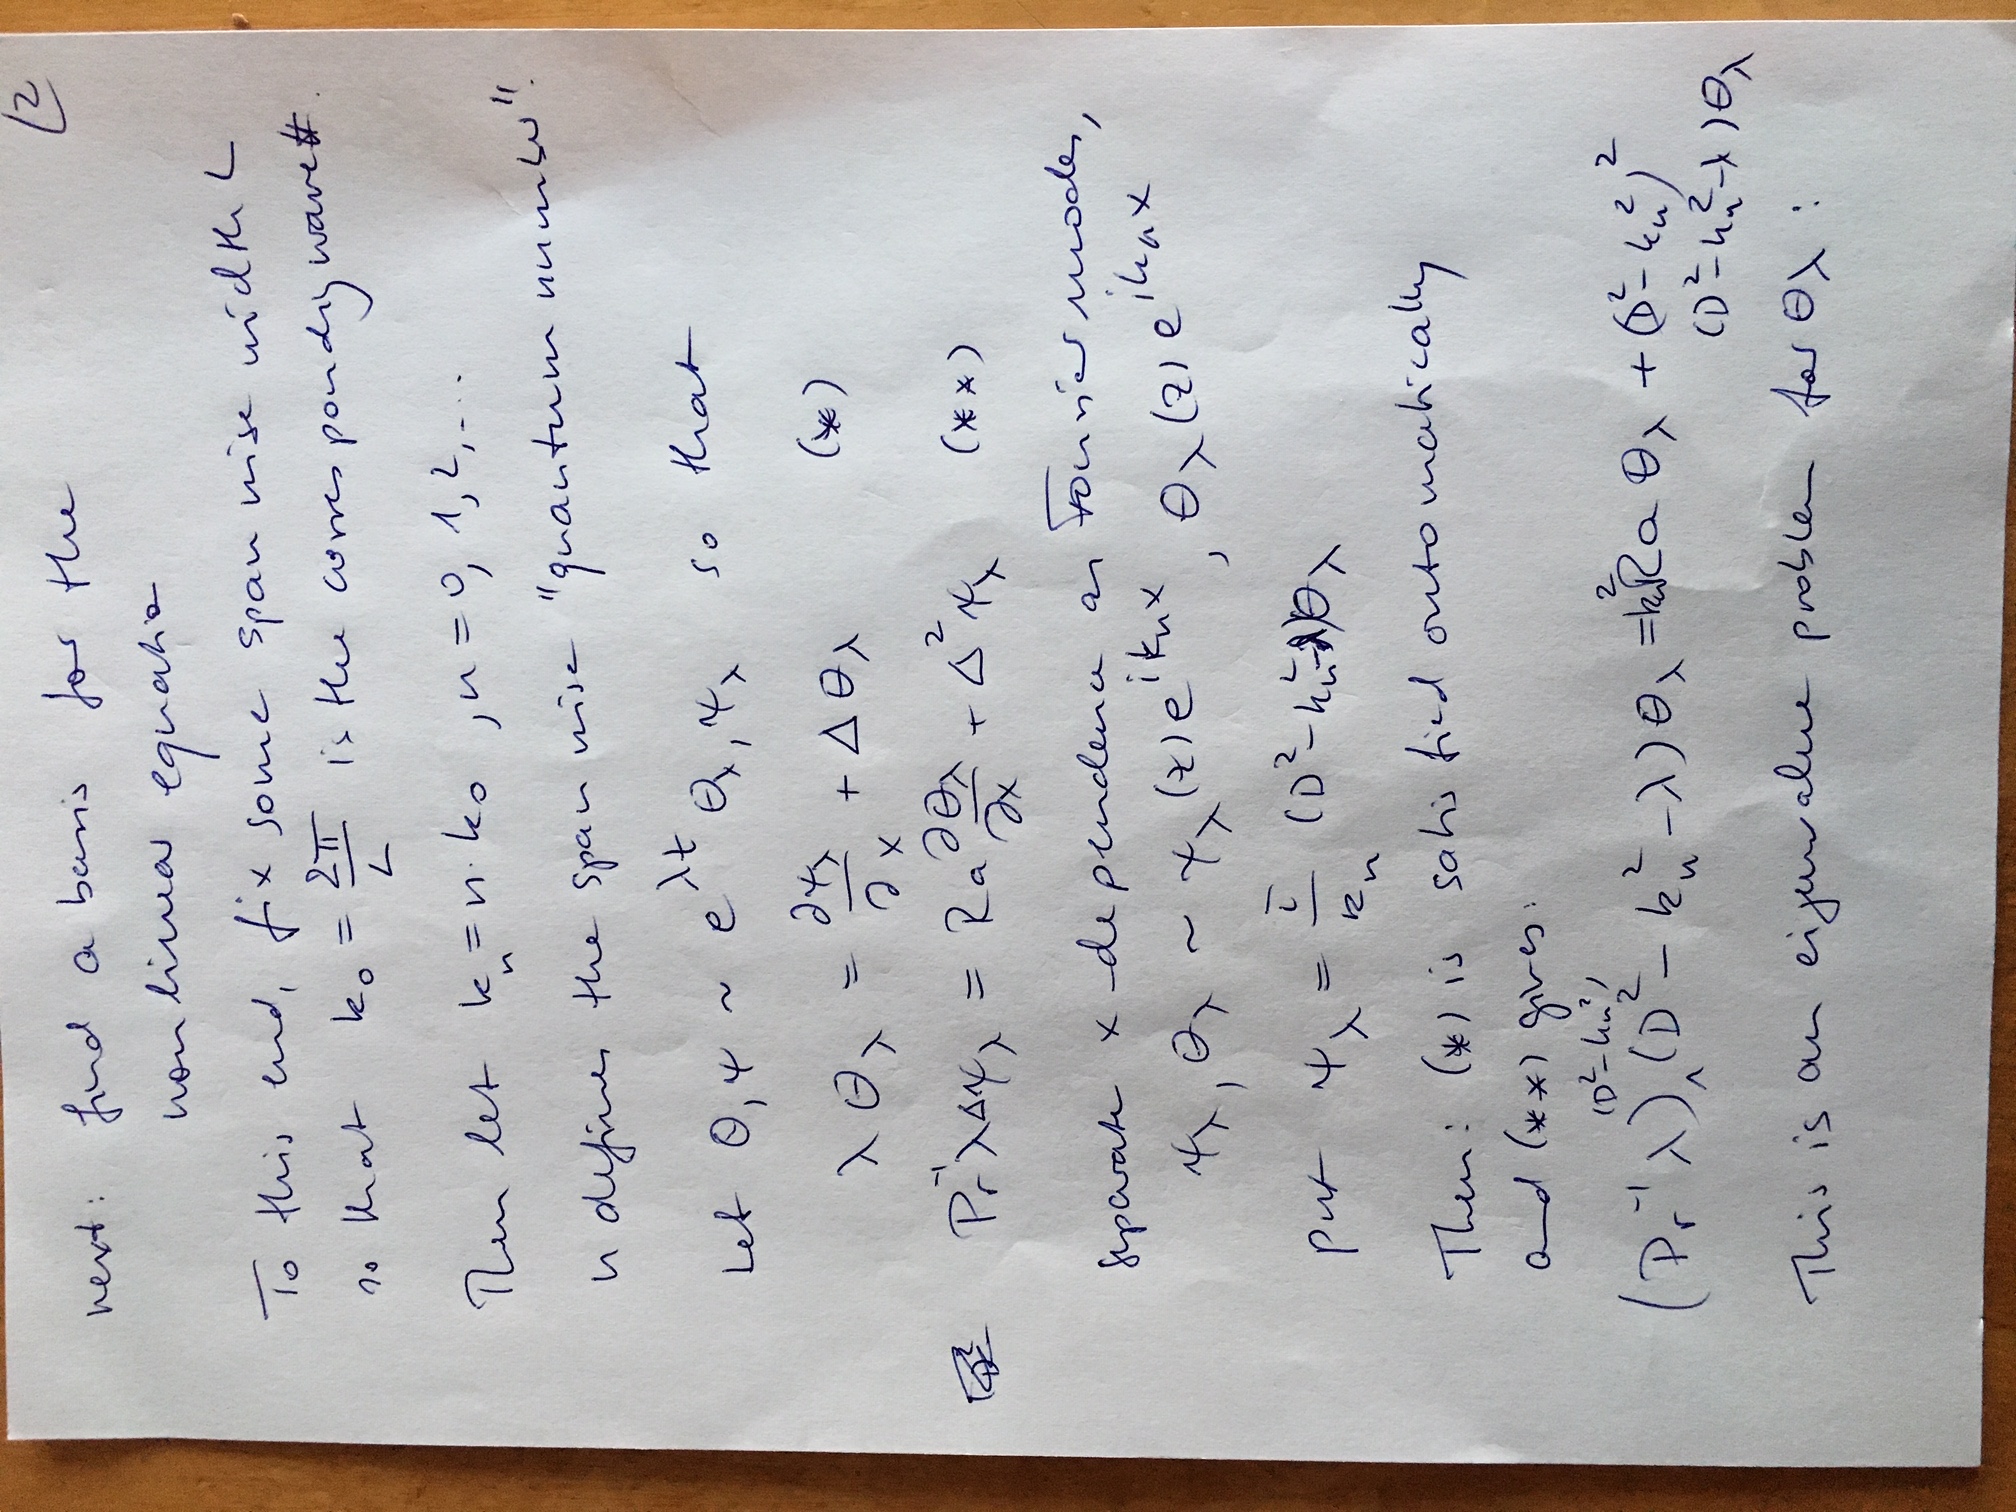 (2
next: find a basis for the
nonlinear equatio
To this end, fix some spanwise width L
so that k₀ = 2π/L is the correspondig wave#.
Then let kₙ = n·k₀ , n = 0, 1, 2, ...
n defines the spanwise "quantum number".
Let θ, ψ ~ e^{λt} θ_λ, ψ_λ so that
λ θ_λ = ∂ψ_λ/∂x + Δθ_λ (*)
Pr⁻¹ λ Δψ_λ = Ra ∂θ_λ/∂x + Δ²ψ_λ (**)
separate x-dependence as Fourier modes,
ψ_λ, θ_λ ~ ψ_λ(z)e^{ikₙx}, θ_λ(z)e^{ikₙx}
put ψ_λ = i/kₙ (D²-kₙ²-λ)θ_λ
Then: (*) is satisfied automatically
and (**) gives:
(D²-kₙ²)
(Pr⁻¹ λ)‸(D²-kₙ²-λ)θ_λ = kₙ²Ra θ_λ + (D²-kₙ²)²
(D²-kₙ²-λ)θ_λ
This is an eigenvalue problem for θ_λ :